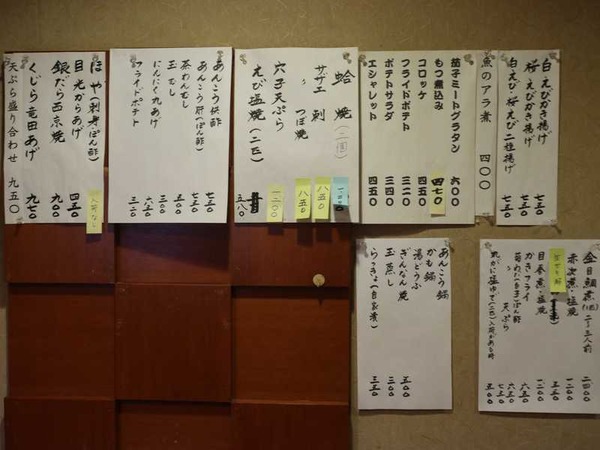 白えびかき揚げ 七五〇
桜えびかき揚げ 七五〇
白えび・桜えび二種揚げ 七五〇
魚のアラ煮 四〇〇
茄子ミートグラタン 六〇〇
もつ煮込み 四七〇
コロッケ 四五〇
フライドポテト 三二〇
ポテトサラダ 四三〇
エシャレット 四五〇
蛤焼(二個)
サザエ 刺 八五〇
〃 つぼ焼 八五〇
穴子天ぷら 一二〇〇
えび塩焼(二匹) 五八〇
あんこう供酢 七五〇
あんこう肝(ぽん酢)
茶わんむし
玉むし
にんにく丸あげ
フライドポテト 三二〇
ほや刺身(ぽん酢) 入荷なし
目光からあげ 四五〇
銀だら西京焼 九〇〇
くじら竜田あげ 九七〇
天ぷら盛り合わせ 九五〇
金目鯛煮(一匹)二〜三人前 二四〇〇
赤次煮・塩焼 一二〇〇
目春煮・塩焼 一二〇〇
かきフライ 六五〇
〃 天ぷら 七五〇
あんこう鍋
かも鍋
湯どうふ
ぎんなん焼 五〇〇
玉蒸し 二〇〇
らっきょ(自家煮) 三五〇